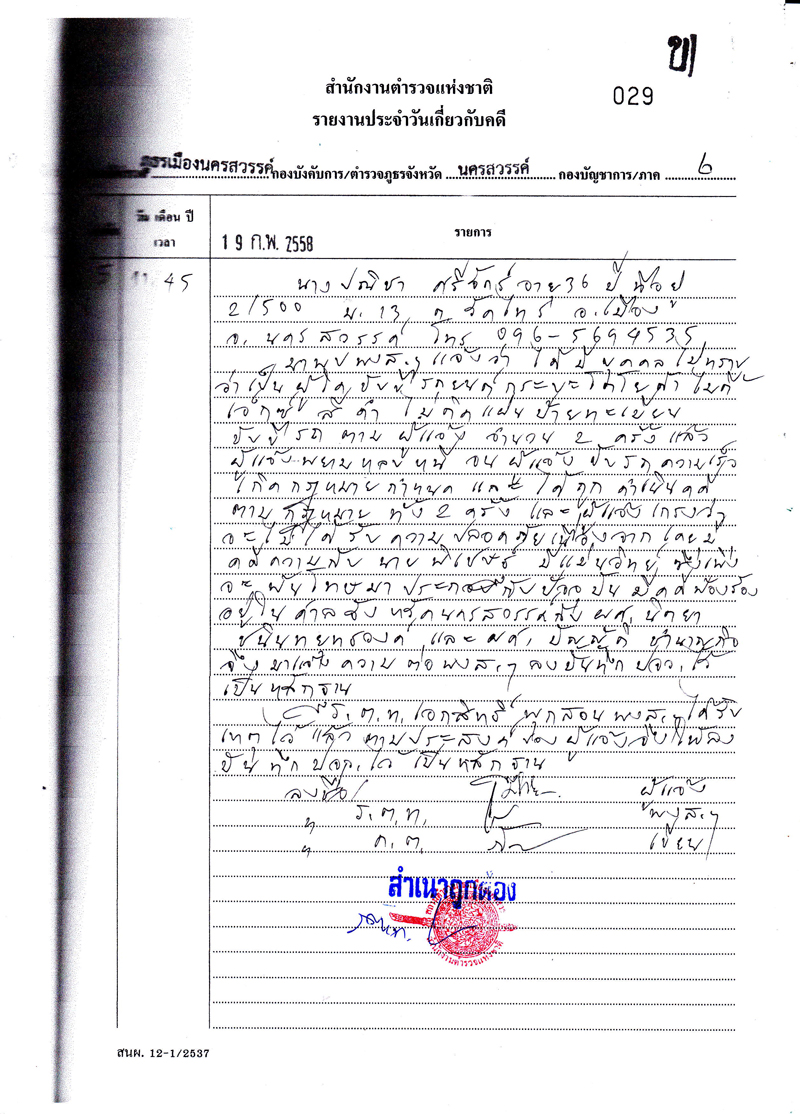 ข)
สำนักงานตำรวจแห่งชาติ
029
รายงานประจำวันเกี่ยวกับคดี
ภูธรเมืองนครสวรรค์ กองบังคับการ/ตำรวจภูธรจังหวัด นครสวรรค์ กองบัญชาการ/ภาค 6
วัน เดือน ปี
เวลา
19 ก.พ. 2558
รายการ
5 11.45
นาง ปณิชา ศรีจักร์ อายุ 36 ปี ที่อยู่
2/500 ม.13 ต.วัดไทร อ.เมือง
จ.นครสวรรค์ โทร 096-5694535
มาพบพงส.ฯ แจ้งว่า ได้มีบุคคลไม่ทราบ
ว่าเป็นผู้ใด ขับขี่รถยนต์กระบะโตโยต้า ไมตี้
เอ็กซ์ สีดำ ไม่ติดแผ่นป้ายทะเบียน
ขับขี่รถตามผู้แจ้ง จำนวน 2 ครั้ง แล้ว
ผู้แจ้งพยามหลบหนี จนผู้แจ้งขับรถความเร็ว
เกิดกฎหมายกำหนด และได้ถูกดำเนินคดี
ตามกฎหมาย ทั้ง 2 ครั้ง และผู้แจ้งเกรงว่า
จะไม่ได้รับความปลอดภัยเนื่องจากเคยมี
คดีความกับ นาย พิเชษฐ์ มีแม่นวิทย์ ซึ่งเพิ่ง
จะพ้นโทษมา ประกอบกับปัจจุบันมีคดีฟ้องร้อง
อยู่ในศาลจังหวัดนครสวรรค์กับ ผศ. นิตยา
และ ผศ. บัญญัติ ชำนาญกิจ
จึงมาแจ้งความต่อพงส.ฯ ลงบันทึก ปจว.ไว้
เป็นหลักฐาน
ร.ต.ท. เอกสิทธิ์ พุกสอน พงส.ฯ ได้รับ
เหตุไว้แล้ว ตามประสงค์ของผู้แจ้งจึงให้ลง
บันทึก ปจว.ไว้เป็นหลักฐาน
ลงชื่อ ผู้แจ้ง
ร.ต.ท. พงส.ฯ
ด.ต. เขียน
สำเนาถูกต้อง
สำนักงานตำรวจแห่งชาติ
สนผ. 12-1/2537